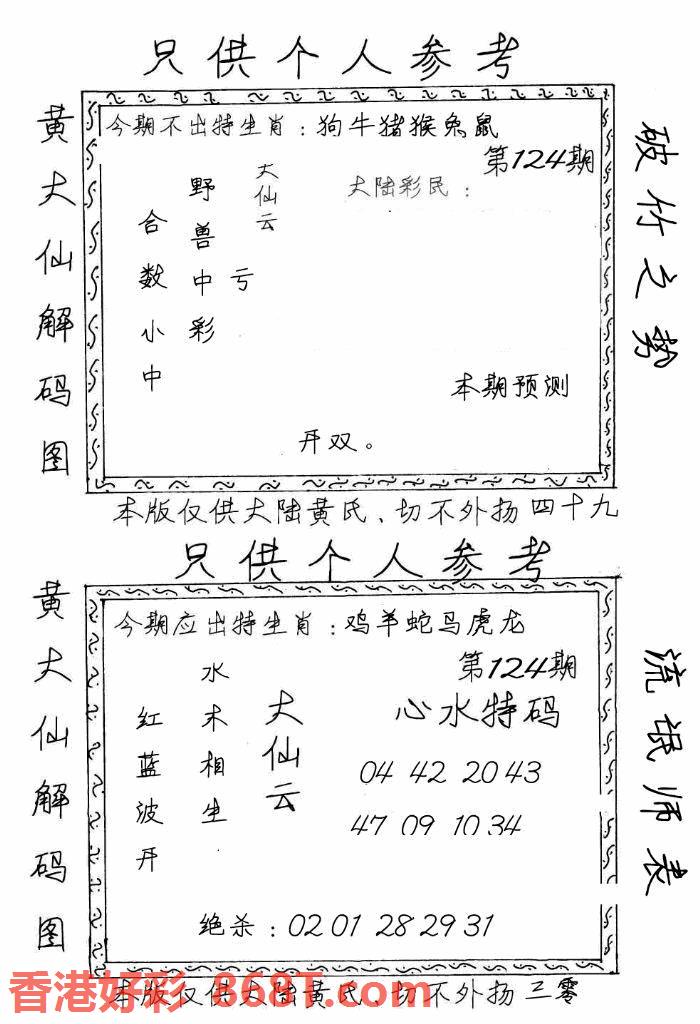 只供个人参考
黄大仙解码图
今期不出特生肖：狗牛猪猴兔鼠
第124期
大仙云
野兽中彩
亏
合数小中
大陆彩民：
本期预测
开双。
破竹之势
本版仅供大陆黄氏、切不外扬四十九
只供个人参考
黄大仙解码图
今期应出特生肖：鸡羊蛇马虎龙
第124期
大仙云
水木相生
红蓝波开
心水特码
04 42 20 43
47 09 10 34
绝杀：02 01 28 29 31
流氓师表
本版仅供大陆黄氏、切不外扬三零
香港好彩 868T.com